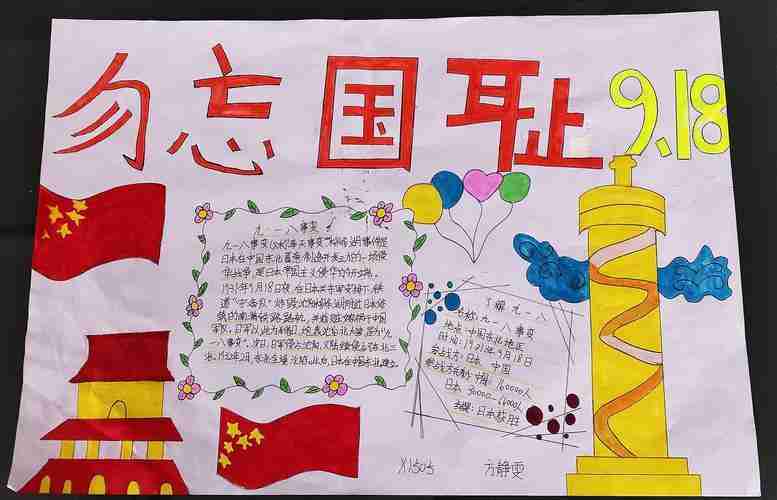 勿忘国耻 9.18
九·一八事变
日本在中国东北蓄意制造并发动的一场侵
华战争,是日本帝国主义侵华的开端。
1931年9月18日夜,在日本关东军安排下,铁
道"守备队"炸毁沈阳柳条湖附近日本修
筑的南满铁路路轨,并
军队。日军以此为借口,
一八事变"。次日,日军侵占沈阳,又陆续侵占了东北三
省。1932年2月,东北全境沦陷。此后,日本在中国东北建立
了解九一八
名称:九一八事变
地点:中国东北地区
时间:1931年9月18日
参战方:日本 中国
参战方兵力 中国:160000人
日本 30000-66000人
结果:日本获胜
X1505 方静雯